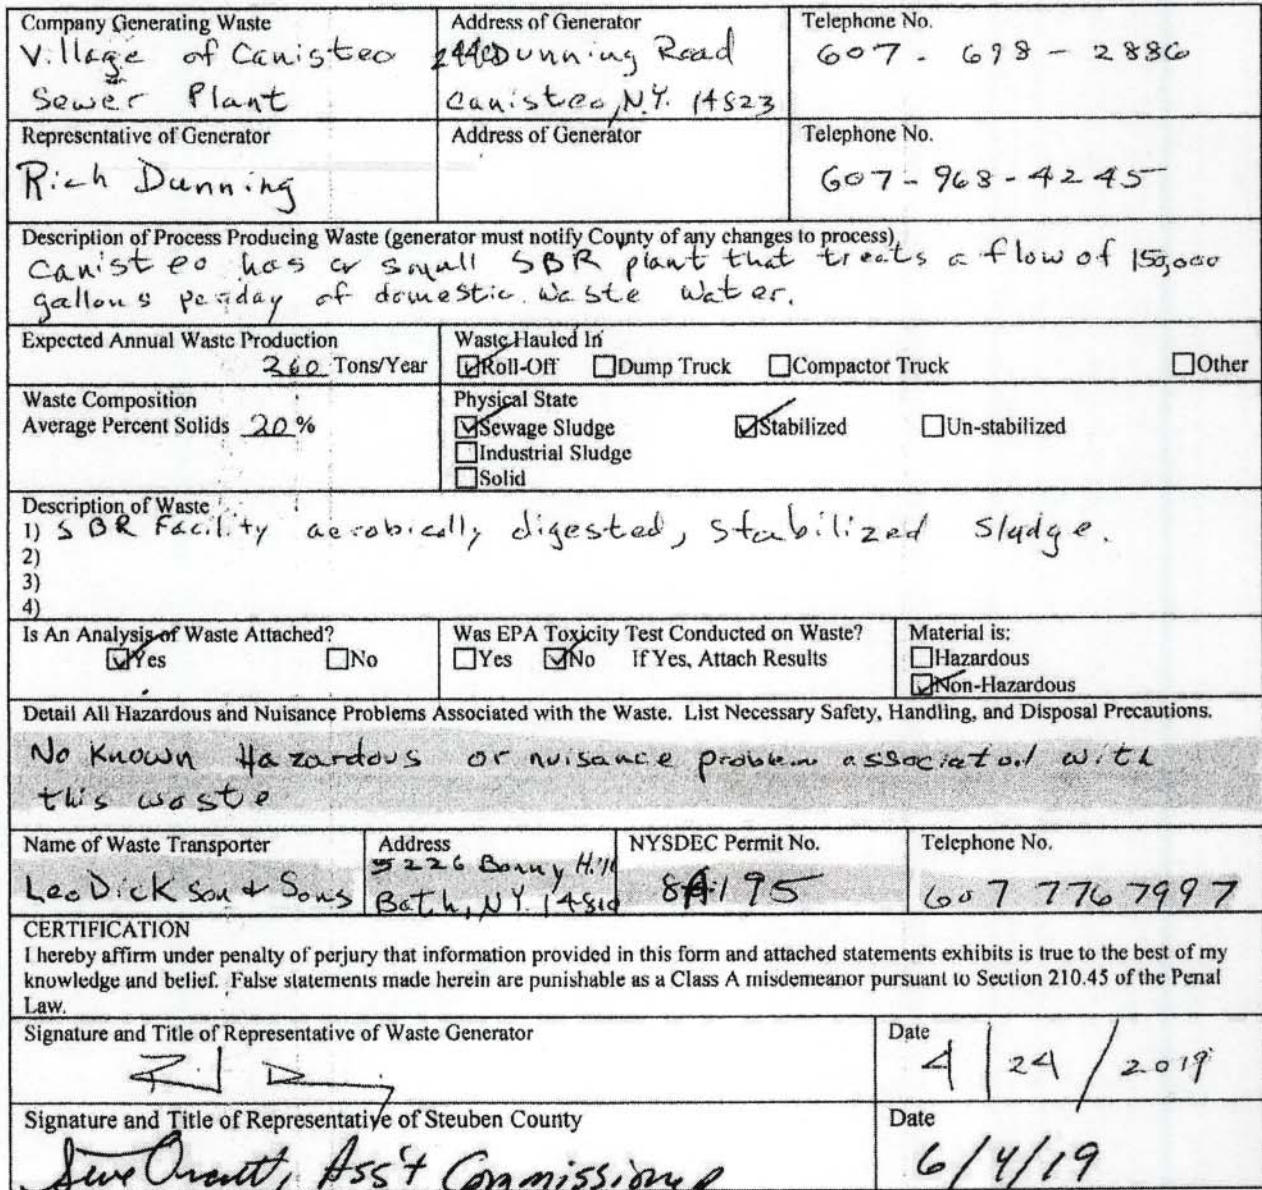 Company Generating Waste
Village of Canisteo
Sewer Plant
Address of Generator
Dunning Road
Canisteo, N.Y. 14823
Telephone No.
607 - 698 - 2886
Representative of Generator
Rich Dunning
Address of Generator
Telephone No.
607 - 968 - 4245
Description of Process Producing Waste (generator must notify County of any changes to process)
Canisteo has a small SBR plant that treats a flow of 150,000
gallons per day of domestic waste water.
Expected Annual Waste Production
260 Tons/Year
Waste Hauled In
Roll-Off Dump Truck Compactor Truck Other
Waste Composition
Average Percent Solids 20 %
Physical State
Sewage Sludge Stabilized Un-stabilized
Industrial Sludge
Solid
Description of Waste
1) SBR Facility aerobically digested, stabilized sludge.
2)
3)
4)
Is An Analysis of Waste Attached?
Yes No
Was EPA Toxicity Test Conducted on Waste?
Yes No If Yes, Attach Results
Material is:
Hazardous
Non-Hazardous
Detail All Hazardous and Nuisance Problems Associated with the Waste. List Necessary Safety, Handling, and Disposal Precautions.
No Known Hazardous or nuisance problem associated with
this waste
Name of Waste Transporter
Leo Dickson & Sons
Address
5226 Bonny Hill
Bath, N.Y. 14810
NYSDEC Permit No.
8A195
Telephone No.
607 776 7997
CERTIFICATION
I hereby affirm under penalty of perjury that information provided in this form and attached statements exhibits is true to the best of my
knowledge and belief. False statements made herein are punishable as a Class A misdemeanor pursuant to Section 210.45 of the Penal
Law.
Signature and Title of Representative of Waste Generator
Date
4/24/2019
Signature and Title of Representative of Steuben County
Steve Orcutt, Ass't Commissioner
Date
6/4/19